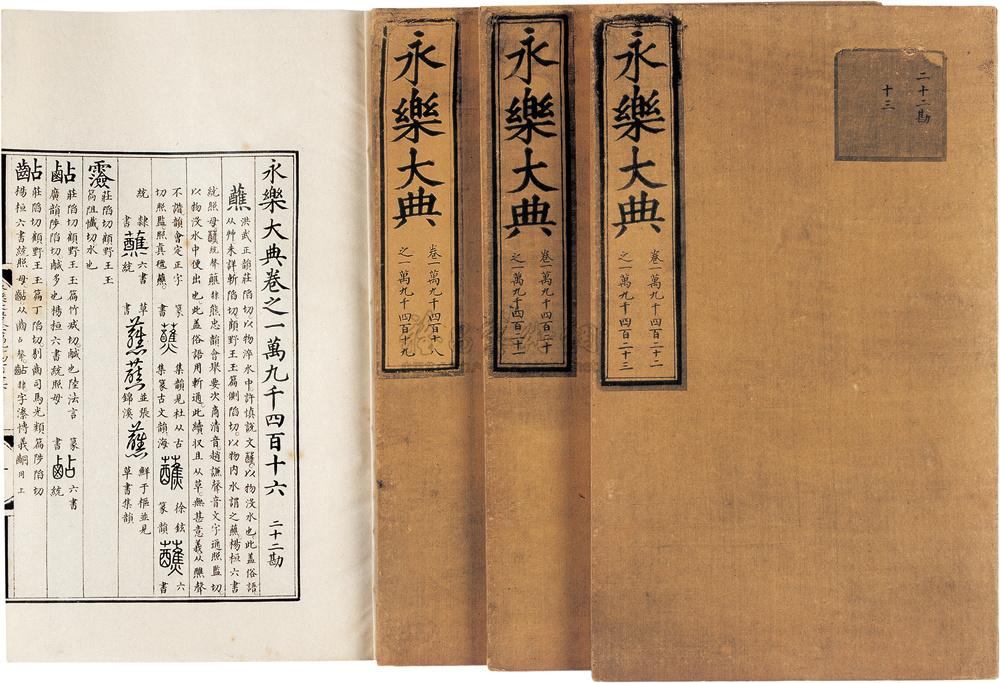 永樂大典
卷一萬九千四百二十二
之一萬九千四百二十三
二十二勘
十三
永樂大典
卷一萬九千四百二十
之一萬九千四百二十一
永樂大典
卷一萬九千四百十八
之一萬九千四百十九
永樂大典卷之一萬九千四百十六 二十二勘
蘸
洪武正韻莊陷切以物淬水中許慎說文蘸以物没水也此蓋俗語
从艸未詳斬陷切顧野王玉篇側陷切以物內水謂之蘸楊桓六書
統照母
隸熊忠韻會舉要次商清音趙謙聲音文字通照監切
以物没水中便出也此蓋俗語用斬通此續収且从草無甚意義从醮聲
不諧韻會定正字
切照監照真氊蘸
篆書 蘸 集韻見杜从古
集篆古文韻海 蘸 徐鉉
篆韻 蘸 六書
統 隸書 蘸 六書統 草書 蘸蘸 並張錦溪 蘸 鮮于樞並見草書集韻
莊陷切顧野王玉
篇阻懺切水也
莊陷切顧野王玉篇竹咸切鹹也陸法言
廣韻陟陷切鹹多也楊桓六書統照母 篆書 六書統
莊陷切顧野王玉篇丁陷切剔齒司馬光類篇陟陷切
楊桓六書統照母 从齒占聲 隸 字溱博義 同上